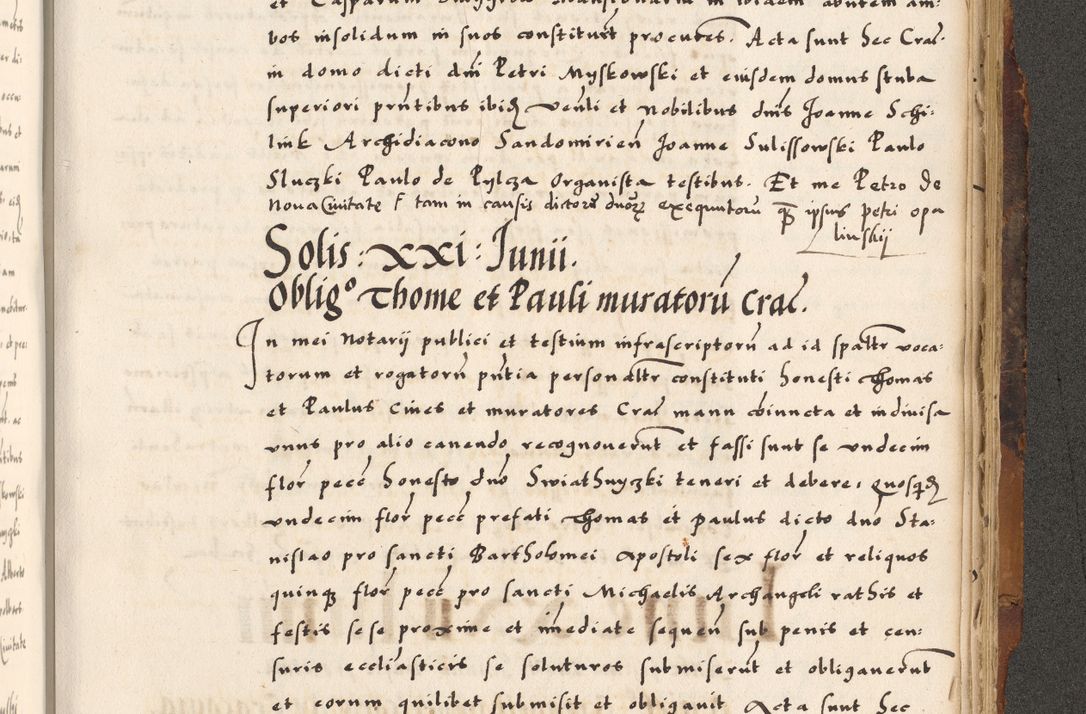 bos insolidum in suos constituit procutes. Acta sunt hec Crac̃
in domo dicti dni Petri Myskowski et eiusdem domus stuba
superiori pntibus ibidẽ venli et nobilibus dnis Joanne Schi:
link Archidiacono Sandomirien̄ Joanne Sulissowski Paulo
Sluczki Paulo de Pylcza Organista testibus. Et me Petro de
Nova Civitate tam in causis dictorũ duorz exequutorũ ipsius Petri opa
linskij
Solis : XXI : Junii.
Obligº Thome et Pauli muratorũ Crac̃.
In mei Notarij publici et testium infrascriptorũ ad id spaltr voca:
torum et rogatorũ pntia personaltr constituti honesti Thomas
et Paulus cives et muratores Crac̃ manu coiuncta et indivisa
unus pro alio cavendo recognoverut et fassi sunt se undecim
flor pecc honesto dno Swiathnyczki teneri et debere, quosqdẽ
undecim flor pecc prefati Thomas et paulus dicto dno Sta:
nislao pro sancti Bartholomei Apostoli sex flor et reliquos
quinqz flor pecc pro sancti Michaelis Archangeli rathis et
festis sese proxime et imediate sequen sub penis et cen:
suris eccliasticis se soluturos submiserut et obligaverut
et eorum quilibet submisit et obligavit Acta sunt hec